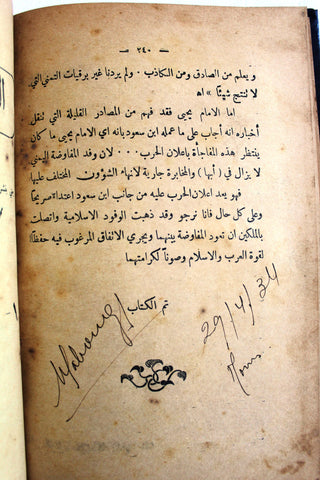 — ٣٤٠ —
و يعلم من الصادق ومن الكاذب . ولم يردنا غير برقيات التمني التي
لا تنتج شيئاً » اه
اما الامام يحيى فقد فهم من المصادر القليلة التي تنقل
أخباره انه أجاب على ما عمله ابن سعود بانه اي الامام يحيى ما كان
ينتظر هذه المفاجأة باعلان الحرب . . . لان وفد المفاوضة اليمني
لا يزال في ( أبها ) والمخابرة جارية لانهاء الشؤون المختلف عليها
فهو يعد اعلان الحرب عليه من جانب ابن سعود اعتداءً صريحاً
وعلى كل حال فانا نرجو وقد ذهبت الوفود الاسلامية واتصلت
بالملكين ان تعود المفاوضة بينهما ويجري الاتفاق المرغوب فيه حفظاً
لقوة العرب والاسلام وصوناً لكرامتهما
تم الكتاب
29/4/34